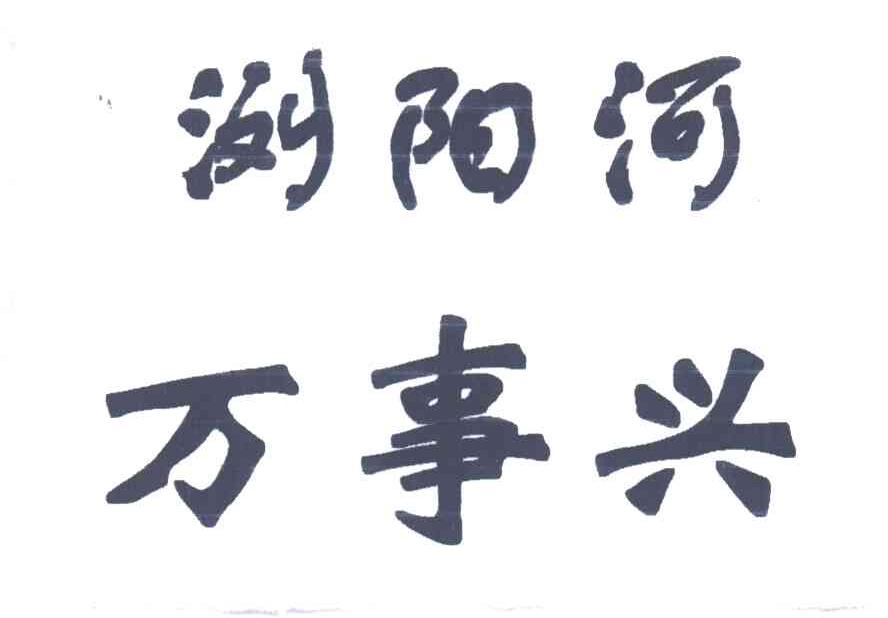 浏阳河
万事兴